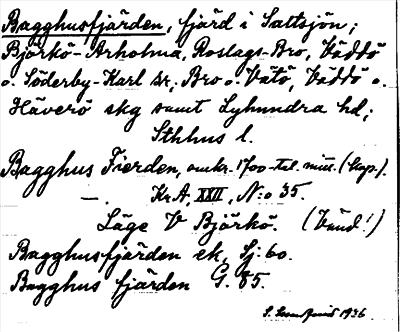 Bagghusfjärden, fjärd i Saltsjön;
Björkö-Arholma, Roslags-Bro, Väddö
o. Söderby-Karl sr; Bro o. Vätö, Väddö o.
Häverö skg samt Lyhundra hd;
Sthlms l.
Bagghus Fierden, omkr. 1700-tal. mus. (kop.).
— . Kr. A, XXII, N:o 35.
Läge V Björkö. (Vänd!)
Bagghusfjerden ek, Sj. 60.
Bagghus fjärden G. 85.
1936